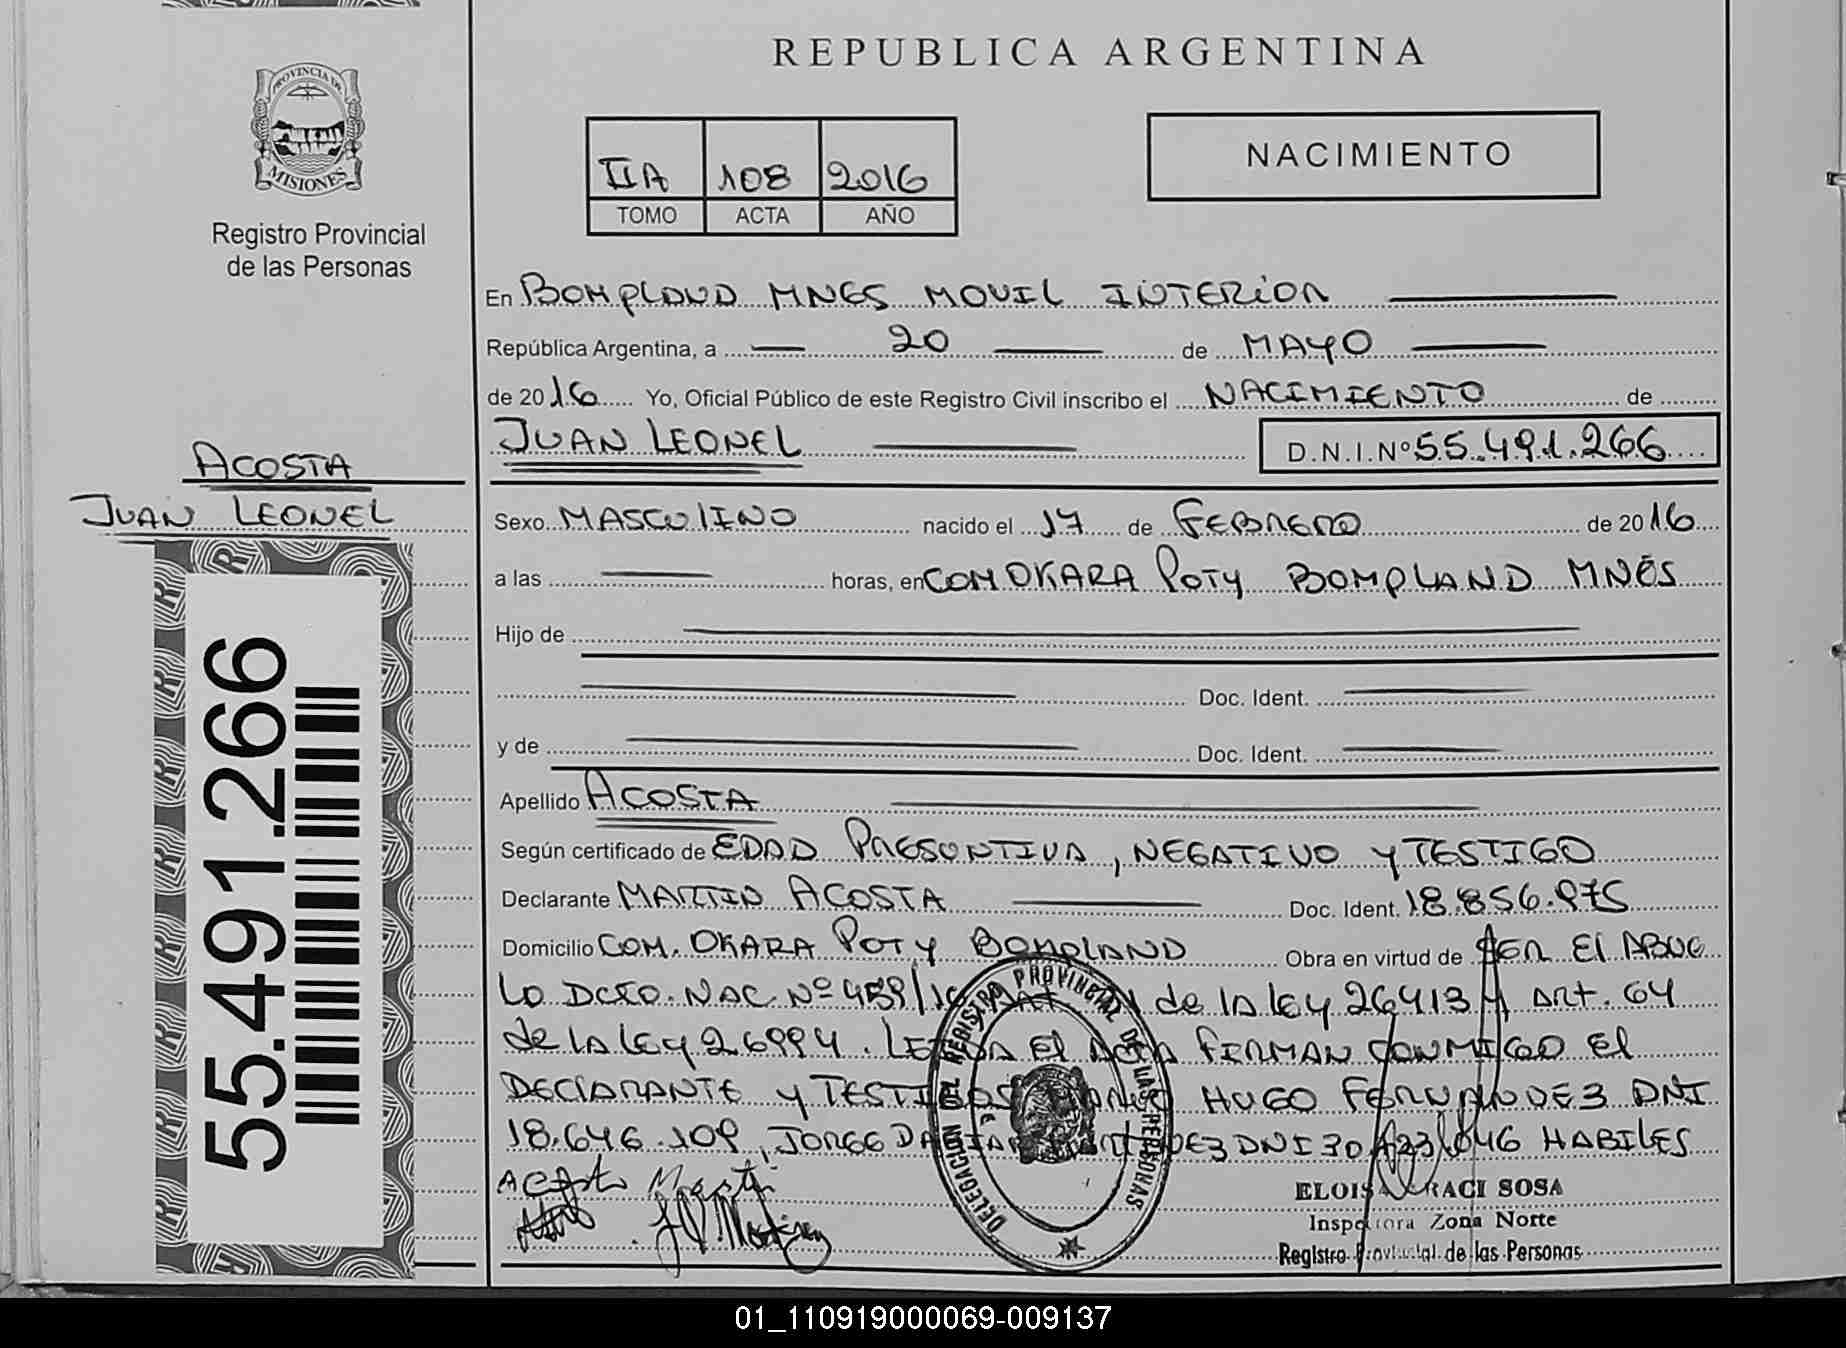 REPUBLICA ARGENTINA
PROVINCIA DE
MISIONES
Registro Provincial
de las Personas
IIA 108 2016
TOMO ACTA AÑO
NACIMIENTO
En BOMPLAND MNES MOVIL INTERIOR
República Argentina, a 20 de MAYO
de 2016 Yo, Oficial Público de este Registro Civil inscribo el NACIMIENTO de
JUAN LEONEL D.N.I.Nº 55.491.266
ACOSTA
JUAN LEONEL
55.491.266
Sexo MASCULINO nacido el 17 de FEBRERO de 2016
a las horas, en COM OKARA POTY BOMPLAND MNES
Hijo de
Doc. Ident.
y de Doc. Ident.
Apellido ACOSTA
Según certificado de EDAD PRESUNTIVA, NEGATIVO Y TESTIGO
Declarante MARTIN ACOSTA Doc. Ident. 18.856.975
Domicilio COM. OKARA POTY BOMPLAND Obra en virtud de SER El ABUE
LO DCTO. NAC. Nº 459/ de lA ley 26413 Y Art. 64
de lA ley 26994. El ACTA FIRMAN CONMIGO El
DECLARANTE Y TESTIGOS HUGO FERNANDEZ DNI
18.646.109, JORGE DNI 30 046 HABILES
Acosta Martin
DELEGACION DEL REGISTRO PROVINCIAL DE LAS PERSONAS
ELOISA ARACI SOSA
Inspectora Zona Norte
Registro Provincial de las Personas
01_110919000069-009137